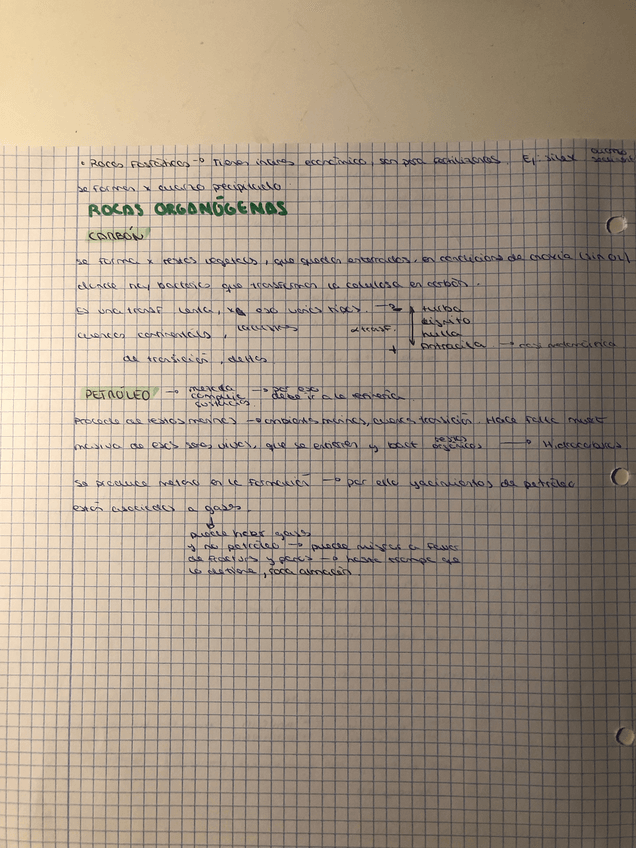 • Rocas Fosfáticas → Tienen interés económico, son para fertilizantes. Ej: silex
se forman x cuarzo precipitado
ROCAS ORGANÓGENAS
CARBÓN
se forma x restos vegetales, que quedan enterrados, en condiciones de anoxia (sin O2)
donde hay bacterias que transforman la celulosa en carbón.
Es una transf lenta, x eso varios tipos. →
turba
lignito
hulla
+ antracita → roca metamórfica
cuencas continentales, lacustres
de transición, deltas
PETRÓLEO → mezcla compleja sustancias → por eso debe ir a la refinería
Procede de restos marinos → ambientes marinos, cuencas transición. Hace falta muerte
masiva de esos seres vivos, que se entierren y bact restos orgánicos → Hidrocarburos
Se produce metano en la formación → por ello yacimientos de petróleo
están asociados a gases.
puede haber gases
y no petróleo → puede migrar a favor
de fracturas y poros → hasta trampa que
lo detiene, roca almacén.